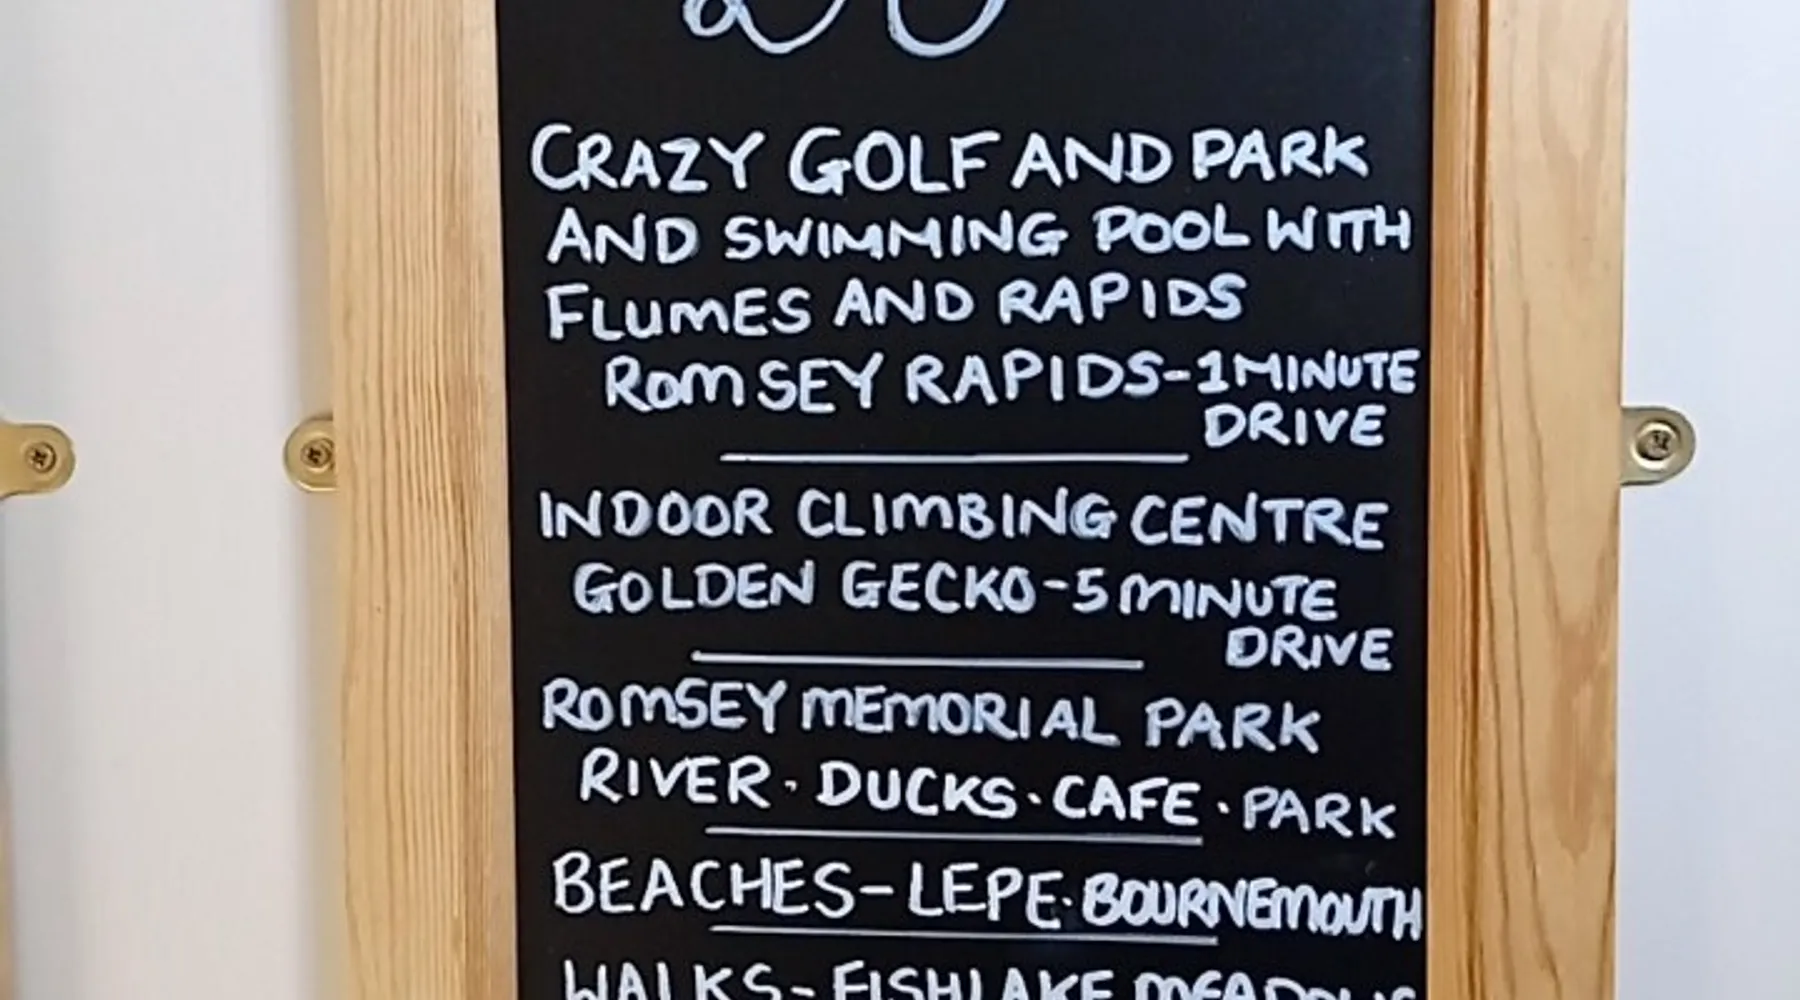 CRAZY GOLF AND PARK
AND SWIMMING POOL WITH
FLUMES AND RAPIDS
ROMSEY RAPIDS-1 MINUTE
DRIVE
INDOOR CLIMBING CENTRE
GOLDEN GECKO-5 MINUTE
DRIVE
ROMSEY MEMORIAL PARK
RIVER · DUCKS · CAFE · PARK
BEACHES-LEPE·BOURNEMOUTH
WALKS-FISHLAKE MEADOWS